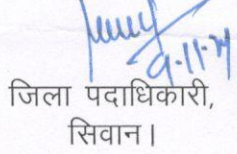 9.11.21
जिला पदाधिकारी,
सिवान।